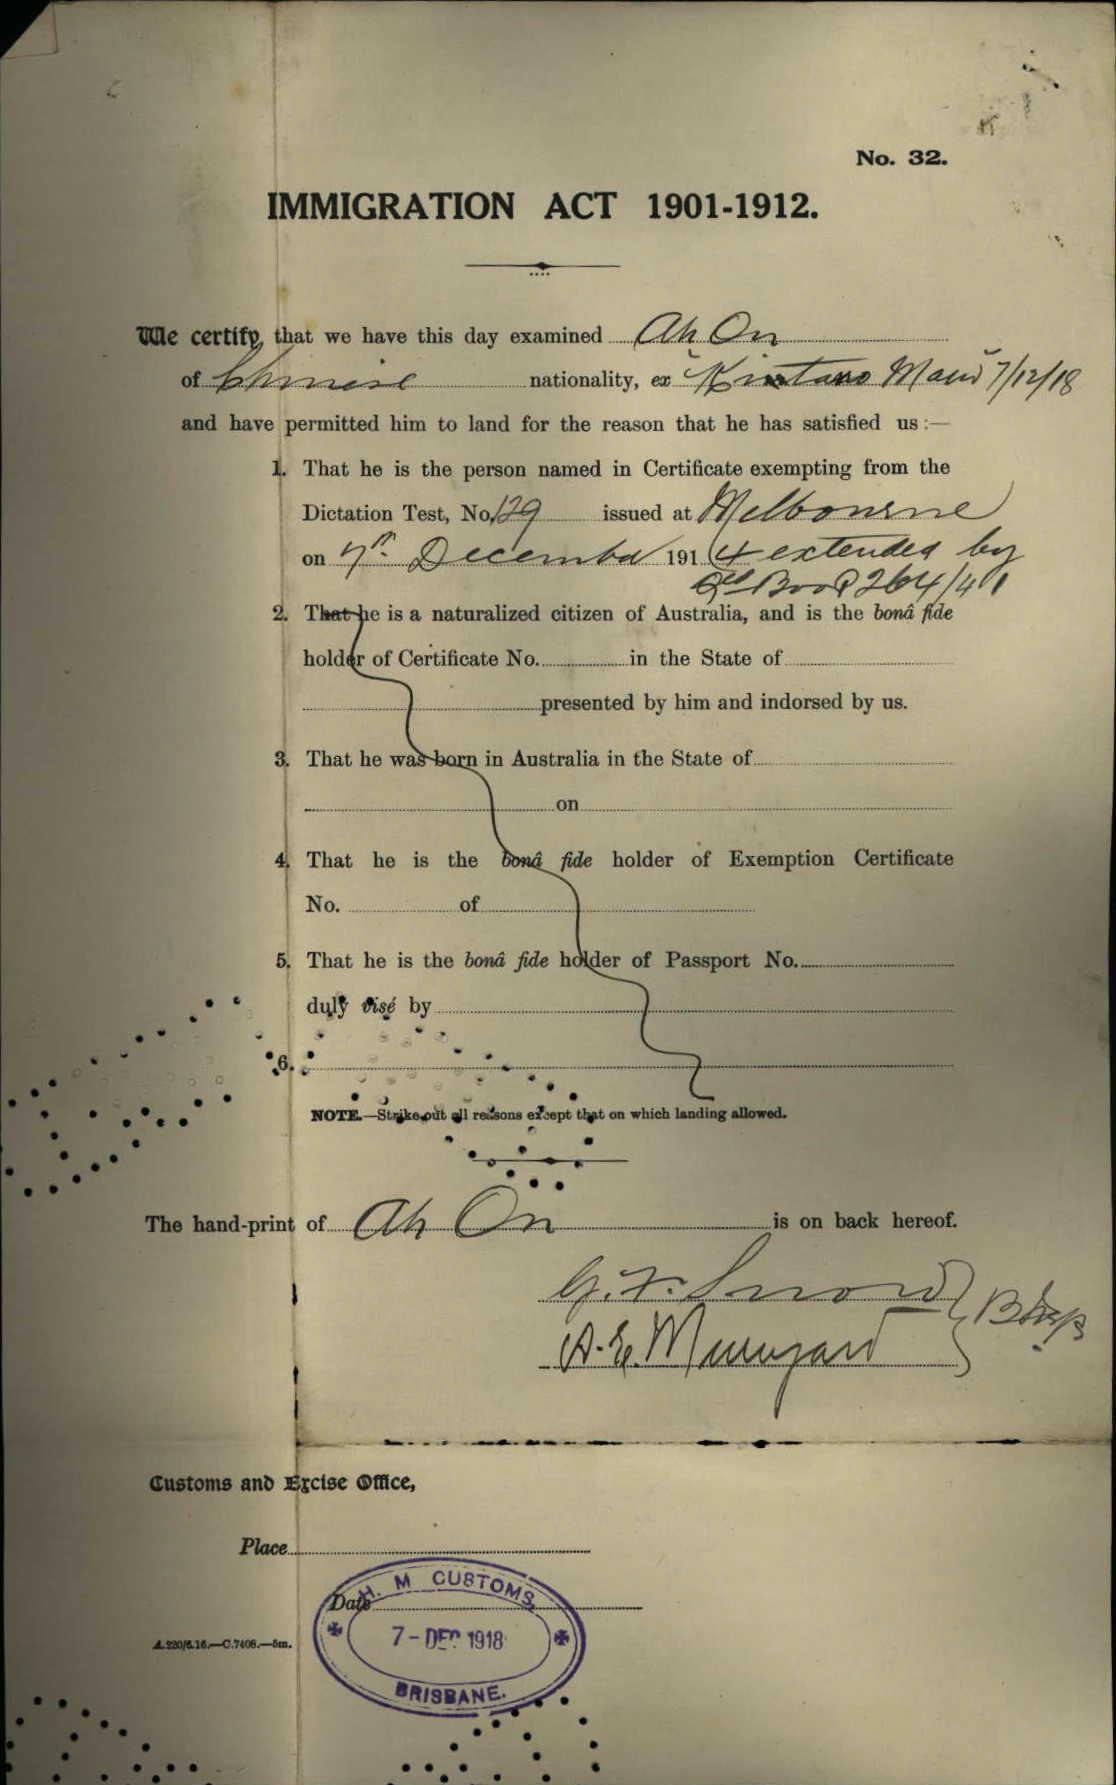 No. 32.
IMMIGRATION ACT 1901-1912.
We certify, that we have this day examined Ah On
of Chinese nationality, ex "Kintano Maru" 7/12/18
and have permitted him to land for the reason that he has satisfied us :—
1. That he is the person named in Certificate exempting from the
Dictation Test, No. 129 issued at Melbourne
on 7th December 1914 extended by
264/41
2. That he is a naturalized citizen of Australia, and is the bonâ fide
holder of Certificate No. in the State of
presented by him and indorsed by us.
3. That he was born in Australia in the State of
on
4. That he is the bonâ fide holder of Exemption Certificate
No. of
5. That he is the bonâ fide holder of Passport No.
duly visé by
6.
NOTE.—Strike out all reasons except that on which landing allowed.
The hand-print of Ah On is on back hereof.
A. E.
Customs and Excise Office,
Place
Date
H. M CUSTOMS,
7 - DEC 1918
BRISBANE.
A.220/6.16.—C.7408.—5m.